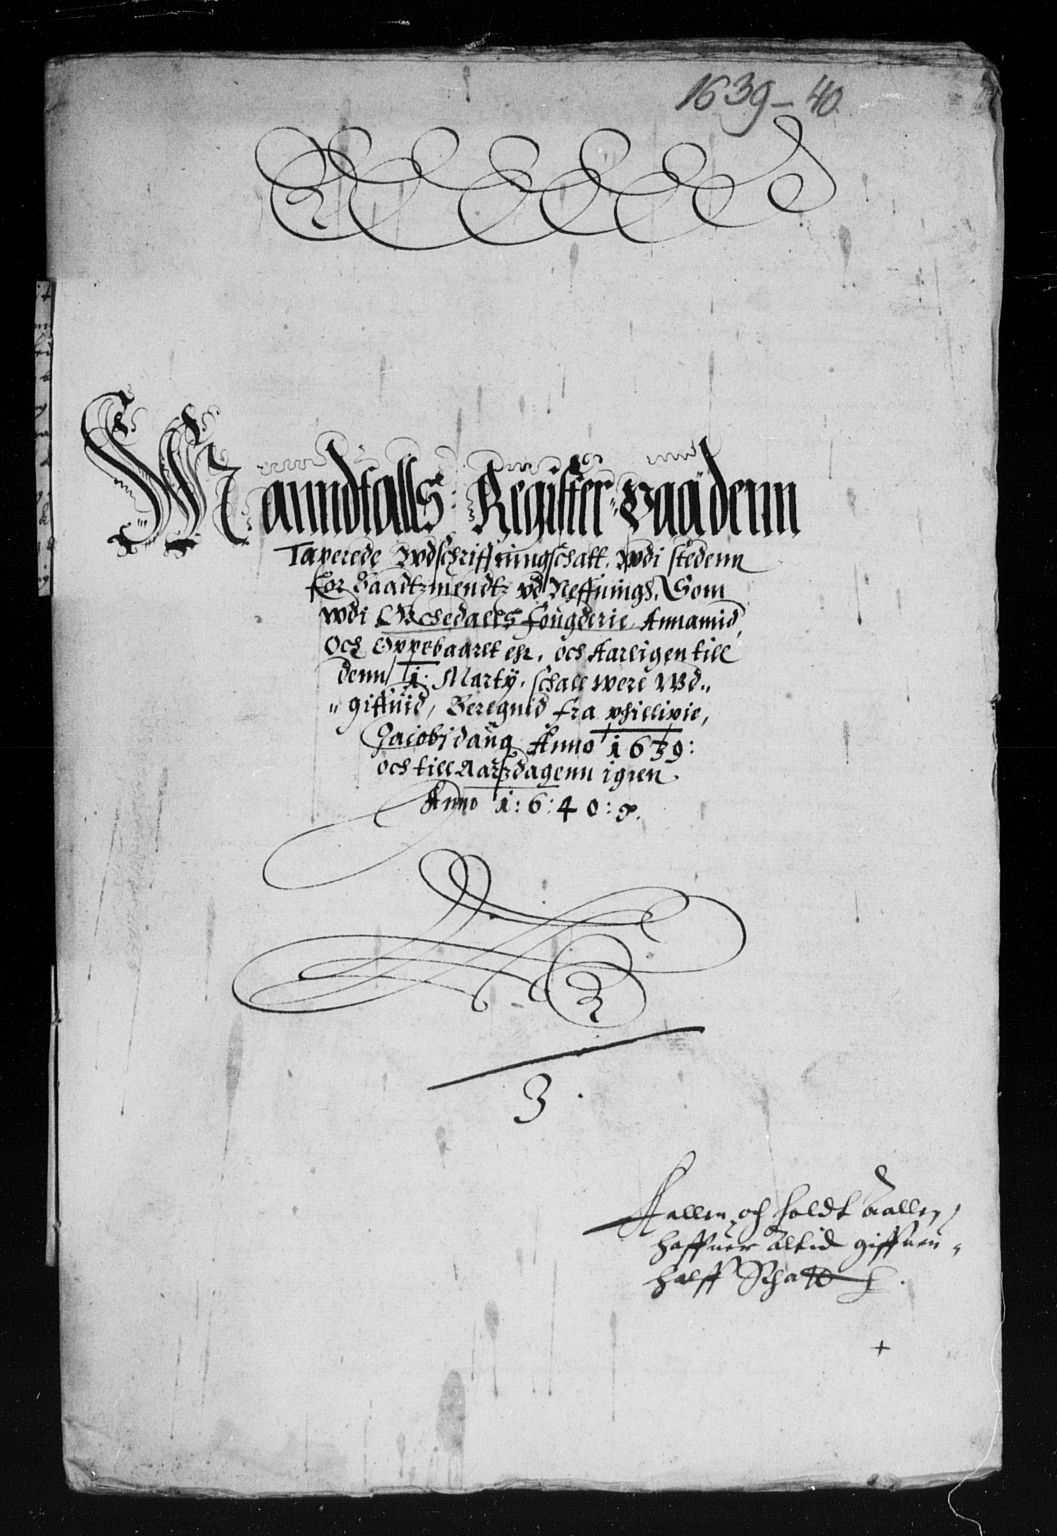 1639-40
Manndtalls Register paa denn
Taxerede Wdschriffningschatt, wdi stedenn
for Baadtzmendtz vd Neffnings, Som
wdi Nedalls fougderie Annamid,
Och Oppebaaret ehr, och Aarligen till
denn 1. Martÿ, schall were wd„
„giffuid, Beregnid fra Phillipie,
Jacobj daug Anno 1639:
och till Aarsdagenn igien
Anno 1:6:40:
3.
och holdt
haffuer altid giffuen
halff Schatt